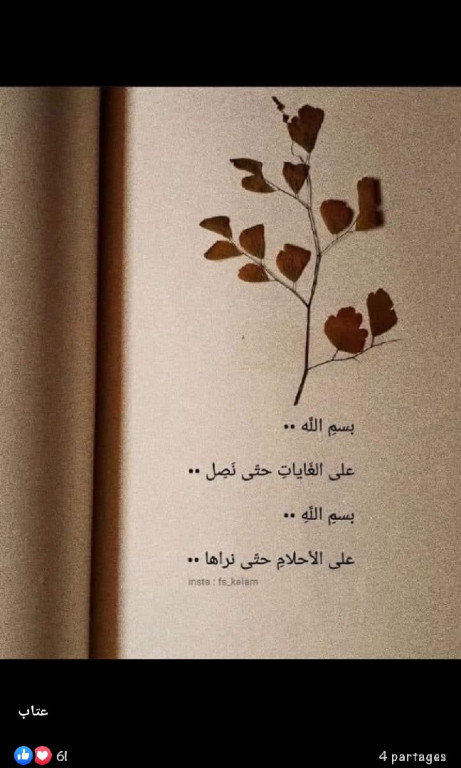 بسمِ اللّه ••
على الغَاياتِ حتّى نَصِل ••
بسمِ اللّهِ ••
على الأحلامِ حتّى نراها ••
insta : fs_kalam
عتاب
61
4 partages